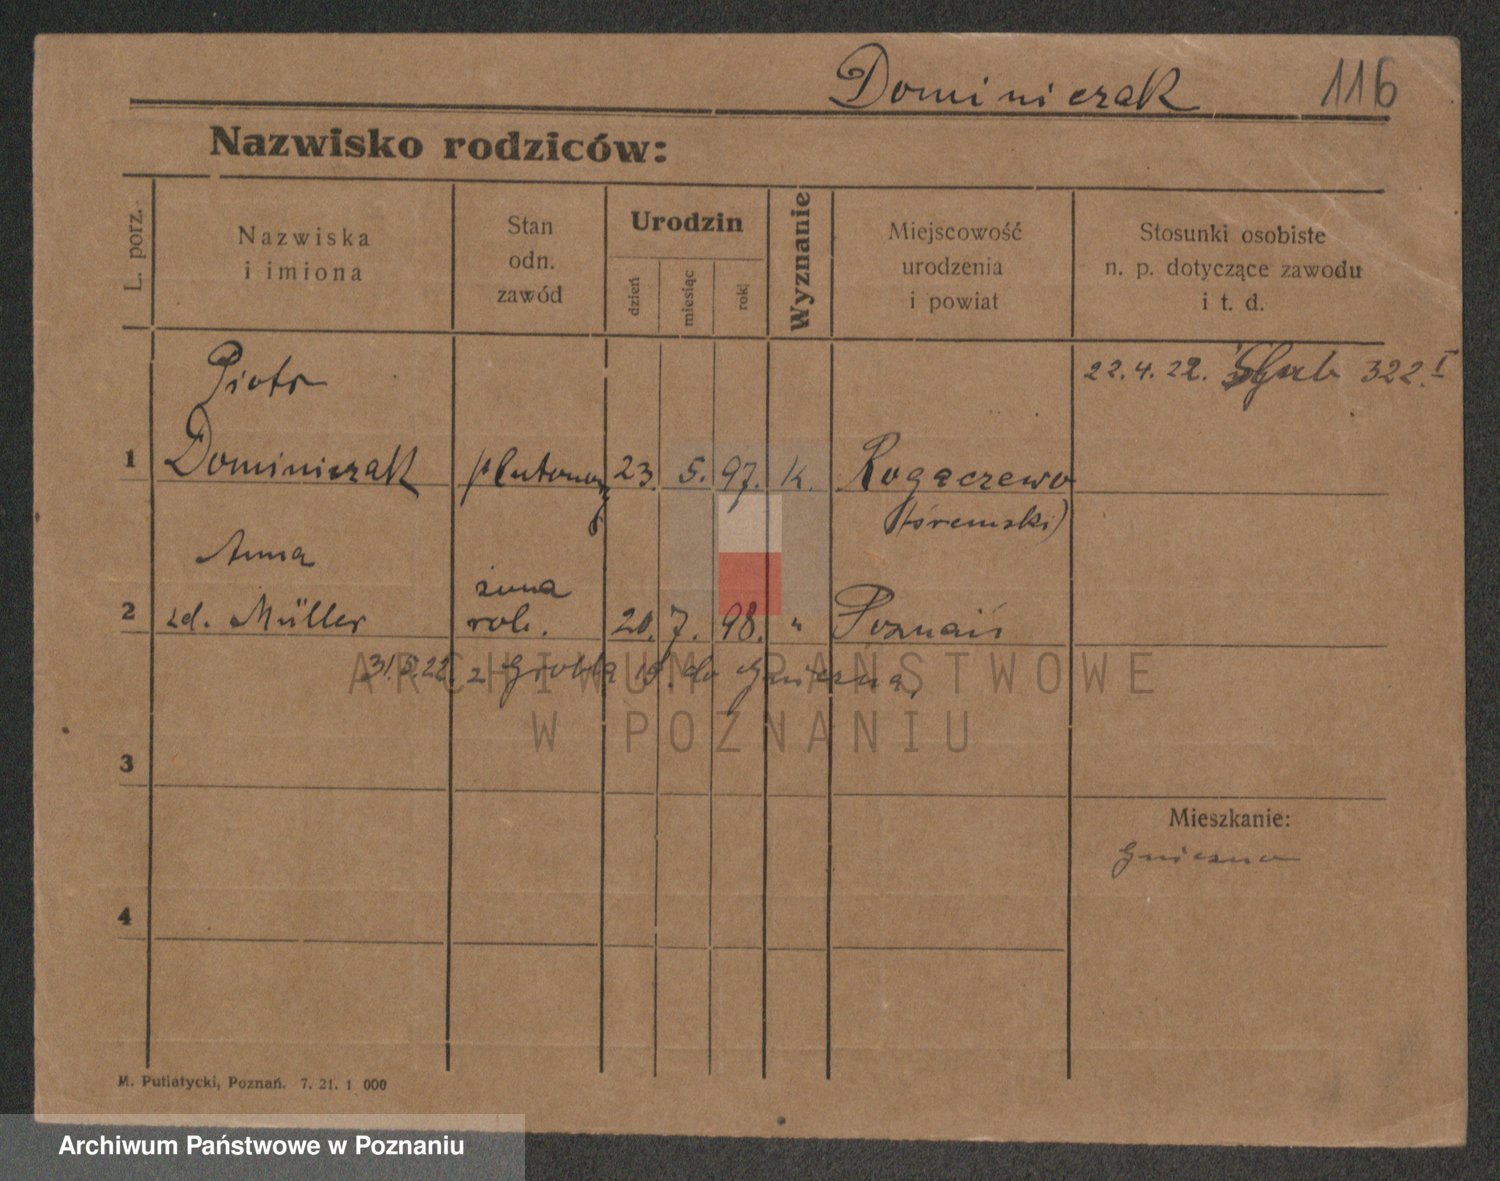 Dominiczak 116
Nazwisko rodziców:
L. porz.
Nazwiska
i imiona
Stan
odn.
zawód
Urodzin
dzień
miesiąc
rok
Wyznanie
Miejscowość
urodzenia
i powiat
Stosunki osobiste
n. p. dotyczące zawodu
i t. d.
Piotr
22.4.22. 322.I
1 Dominiczak plutonowy 23. 5. 97. K. Rogaczewo
(śremski)
Anna
żona
2 zd. Müller rob. 20. 7. 98. " Poznań
31.5.22. z Grobla 19. do Gniezna.
ARCHIWUM PAŃSTWOWE
W POZNANIU
3
Mieszkanie:
Gniezno
4
M. Putiatycki, Poznań. 7. 21. 1 000
Archiwum Państwowe w Poznaniu